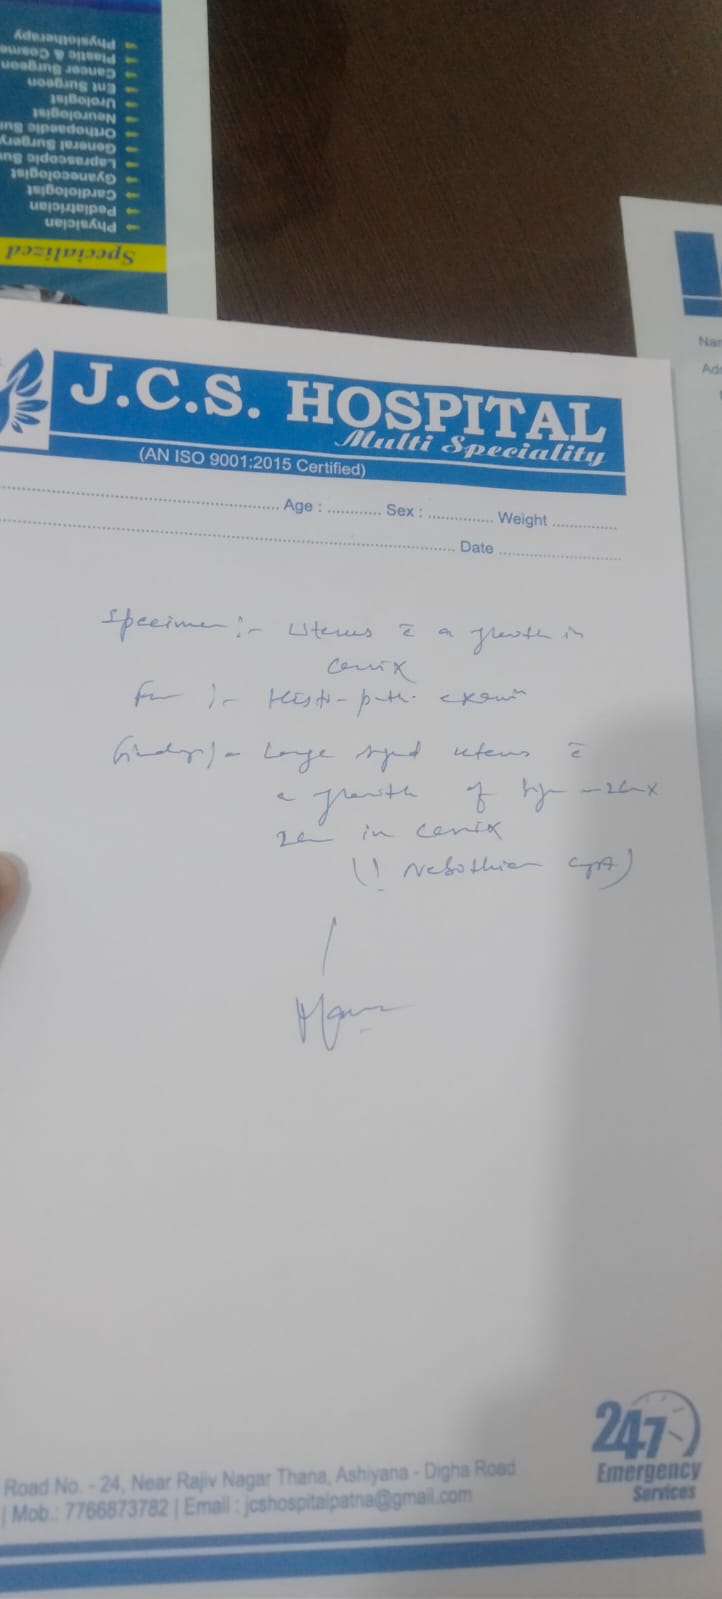 Physiotherapy
Plastic & Cosme
Cancer Surgeon
Ent Surgeon
Urologist
Neurologist
Orthopaedic Sur
General Surgery
Laprascopic Sur
Gynaecologist
Cardiologist
Pediatrician
Physician
Specialized
J.C.S. HOSPITAL
Multi Speciality
(AN ISO 9001:2015 Certified)
Age : ............ Sex : .............. Weight ..............
Date
Nam
Add
Specimen :- Uterus c̄ a growth in
cervix
For :- Histo-path. exam
Findings :- Large sized uterus c̄
a growth of - 2cm x
2cm in cervix
(! Nebothian cyst)
247
Emergency
Services
Road No. - 24, Near Rajiv Nagar Thana, Ashiyana - Digha Road
| Mob.: 7766873782 | Email : jcshospitalpatna@gmail.com